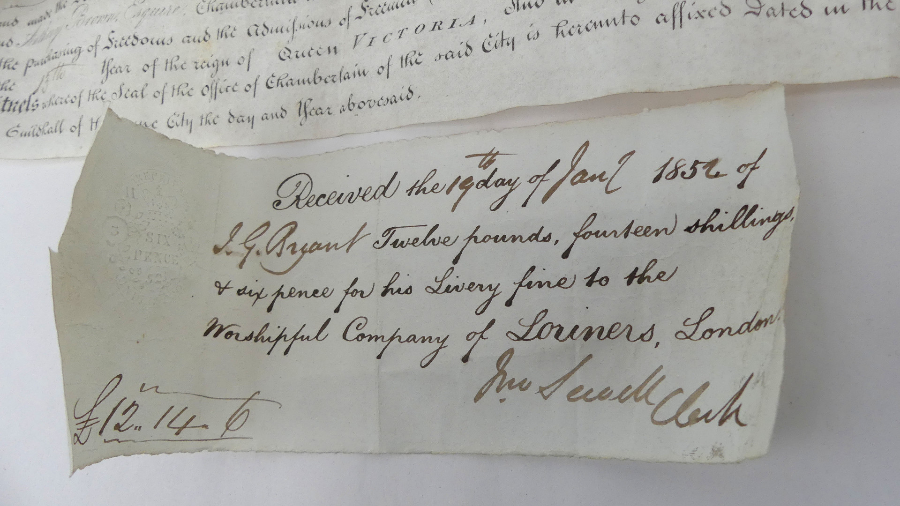 and made the
Esquire, Chamberlain
the purchasing of Freedoms and the Admissions of Freemen
the Year of the reign of Queen VICTORIA, And in
Witness whereof the Seal of the office of Chamberlain of the said City is hereunto affixed Dated in the
Guildhall of the same City the day and Year abovesaid.
Received the 19th day of Jany 1852 of
J. G. Bryant Twelve pounds, fourteen shillings,
& six pence for his Livery fine to the
Worshipful Company of Loriners, London.
Jno Sewell Clerk
£12. 14. 6
SIX
PENCE